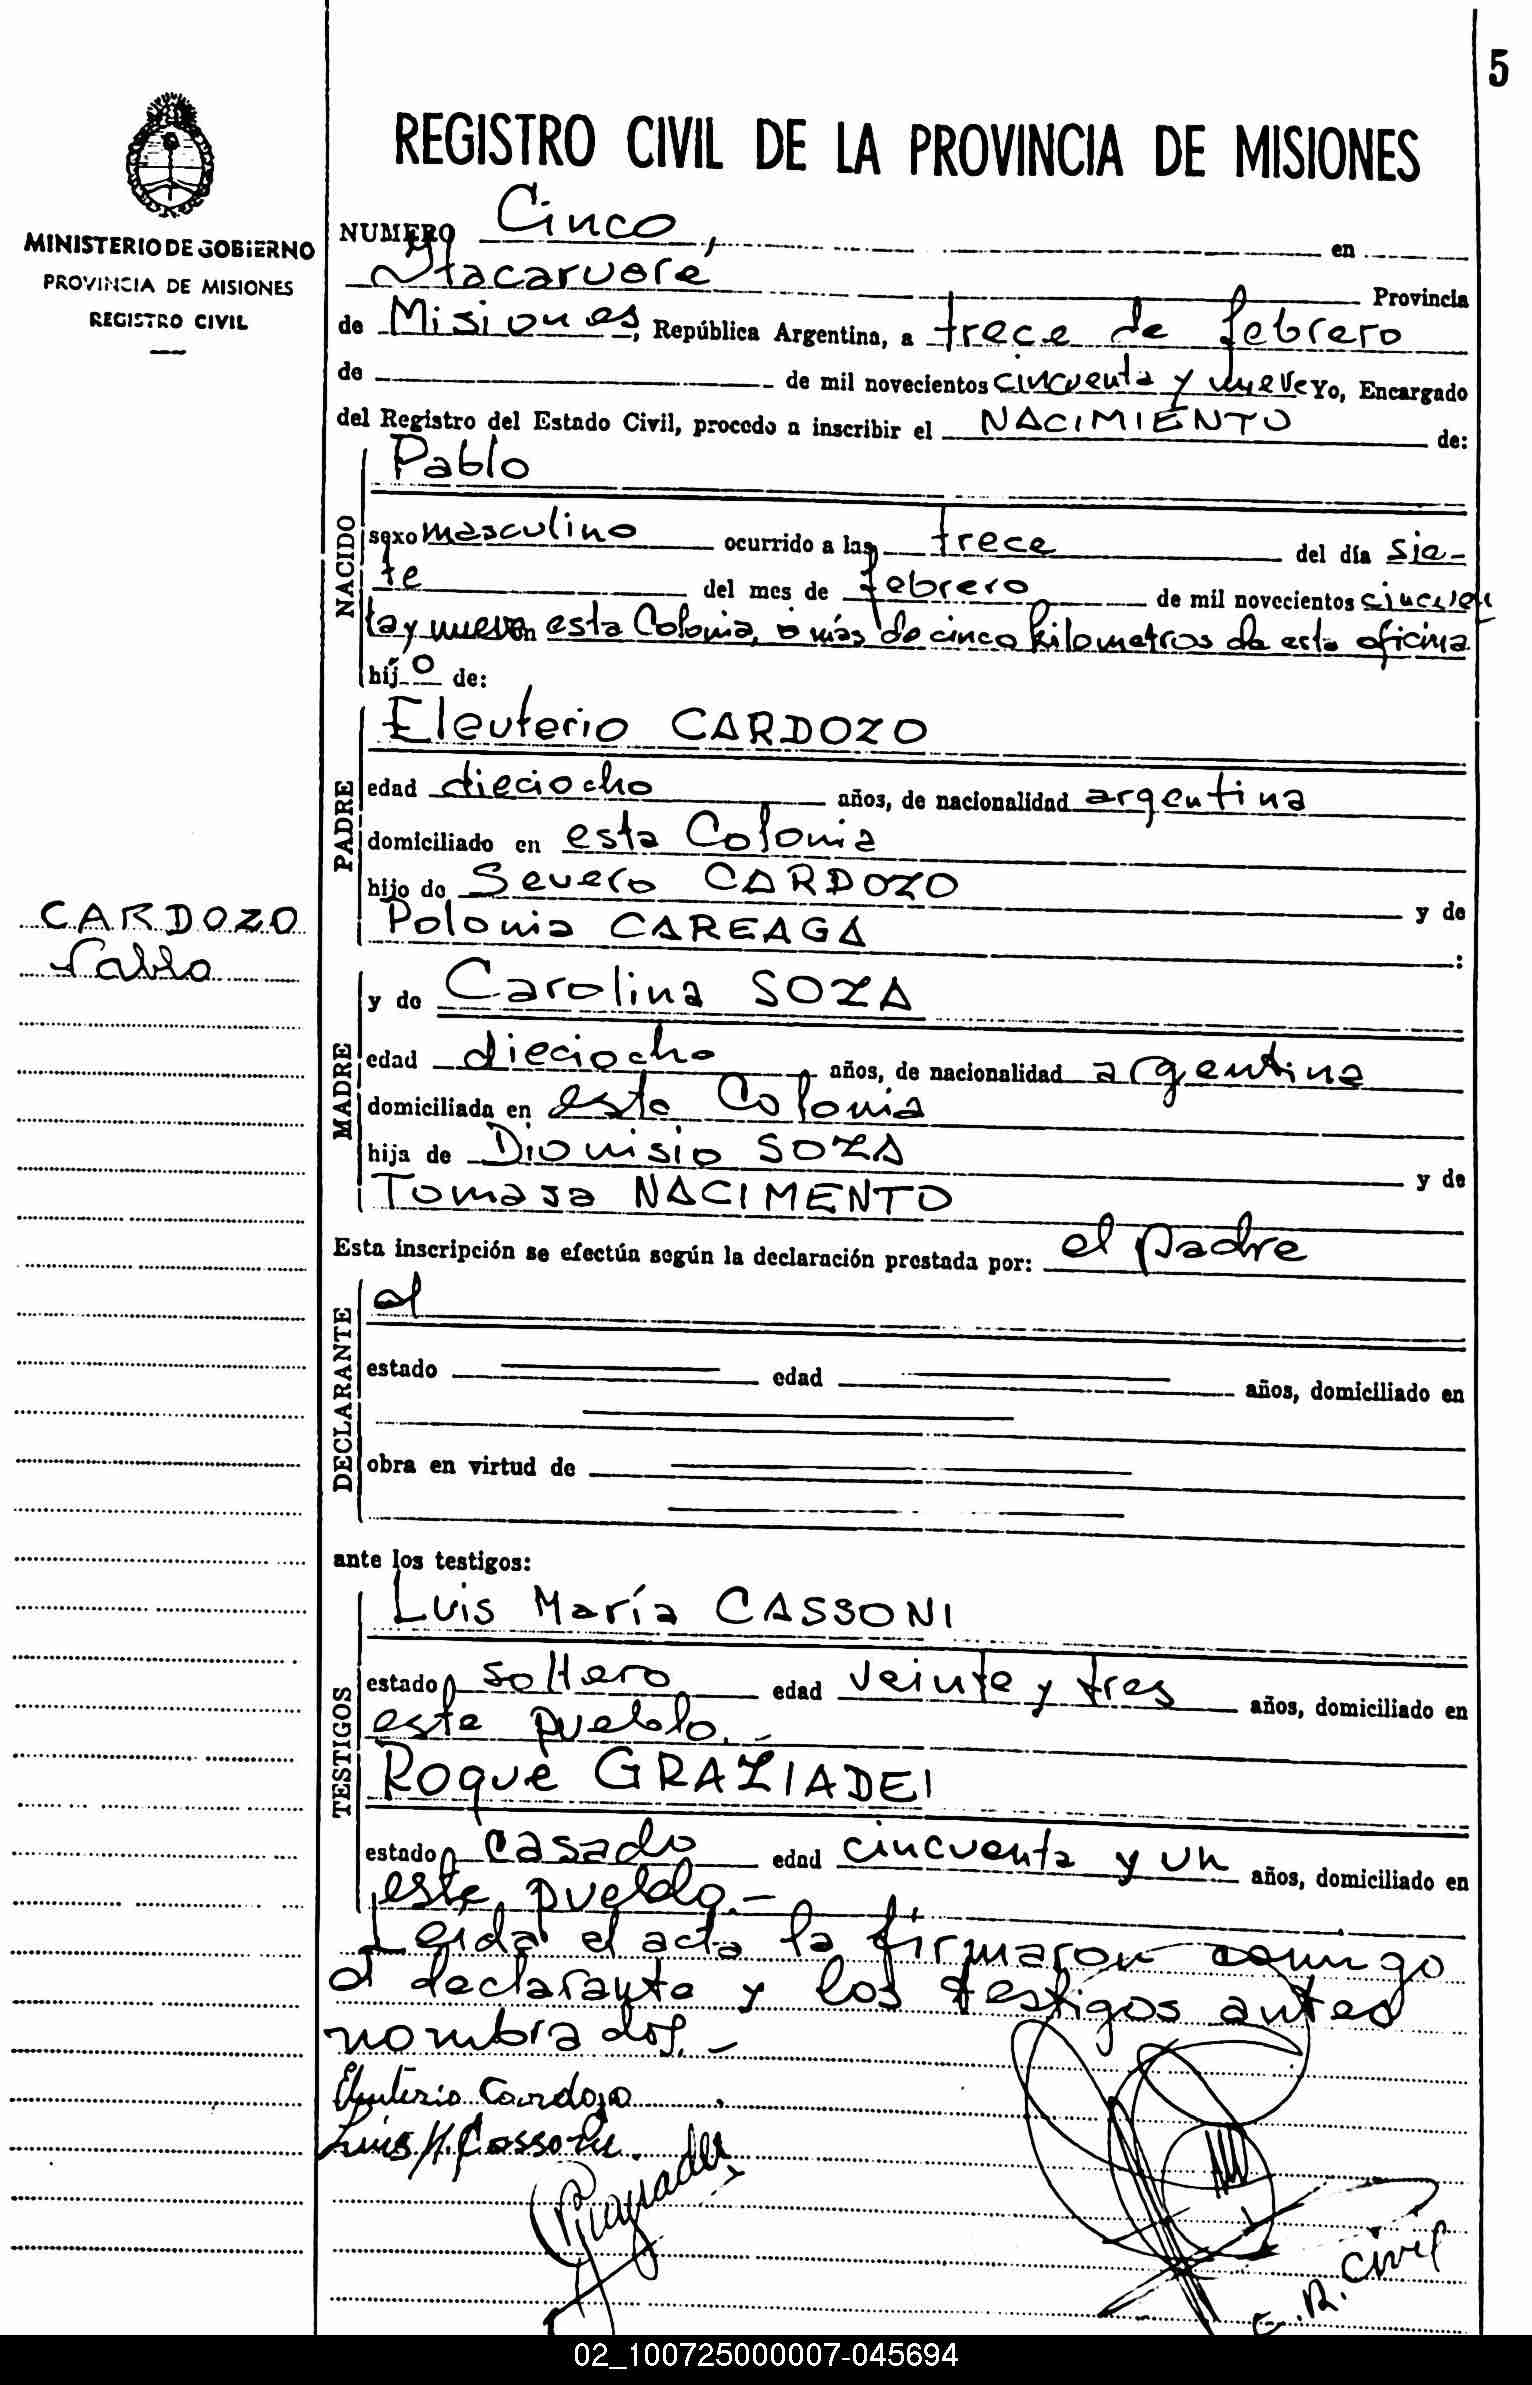 5
REGISTRO CIVIL DE LA PROVINCIA DE MISIONES
MINISTERIO DE GOBIERNO
PROVINCIA DE MISIONES
REGISTRO CIVIL
NUMERO Cinco, en
Itacaruaré Provincia
de Misiones, República Argentina, a trece de febrero
de de mil novecientos cincuenta y nueve Yo, Encargado
del Registro del Estado Civil, procedo a inscribir el NACIMIENTO de:
NACIDO
Pablo
sexo masculino ocurrido a las trece del día sie-
te del mes de febrero de mil novecientos cincuen
ta y nueve en esta Colonia, a más de cinco kilometros de esta oficina
hij o de:
PADRE
Eleuterio CARDOZO
edad dieciocho años, de nacionalidad argentina
domiciliado en esta Colonia
hijo de Severo CARDOZO y de
Polonia CAREAGA :
CARDOZO
Pablo
MADRE
y de Carolina SOZA
edad dieciocho años, de nacionalidad argentina
domiciliada en esta Colonia
hija de Dionisio SOZA y de
Tomasa NACIMENTO
Esta inscripción se efectúa según la declaración prestada por: el padre
DECLARANTE
el
estado edad años, domiciliado en
obra en virtud de
ante los testigos:
TESTIGOS
Luis María CASSONI
estado soltero edad veinte y tres años, domiciliado en
este pueblo.-
Roque GRAZIADEI
estado casado edad cincuenta y un años, domiciliado en
este pueblo.-
Leida el acta la firmaron conmigo
el declarante y los testigos antes
nombrados.-
Eleuterio Cardozo
Luis M. Cassoni
RGraziadei
E. R. Civil
02_100725000007-045694